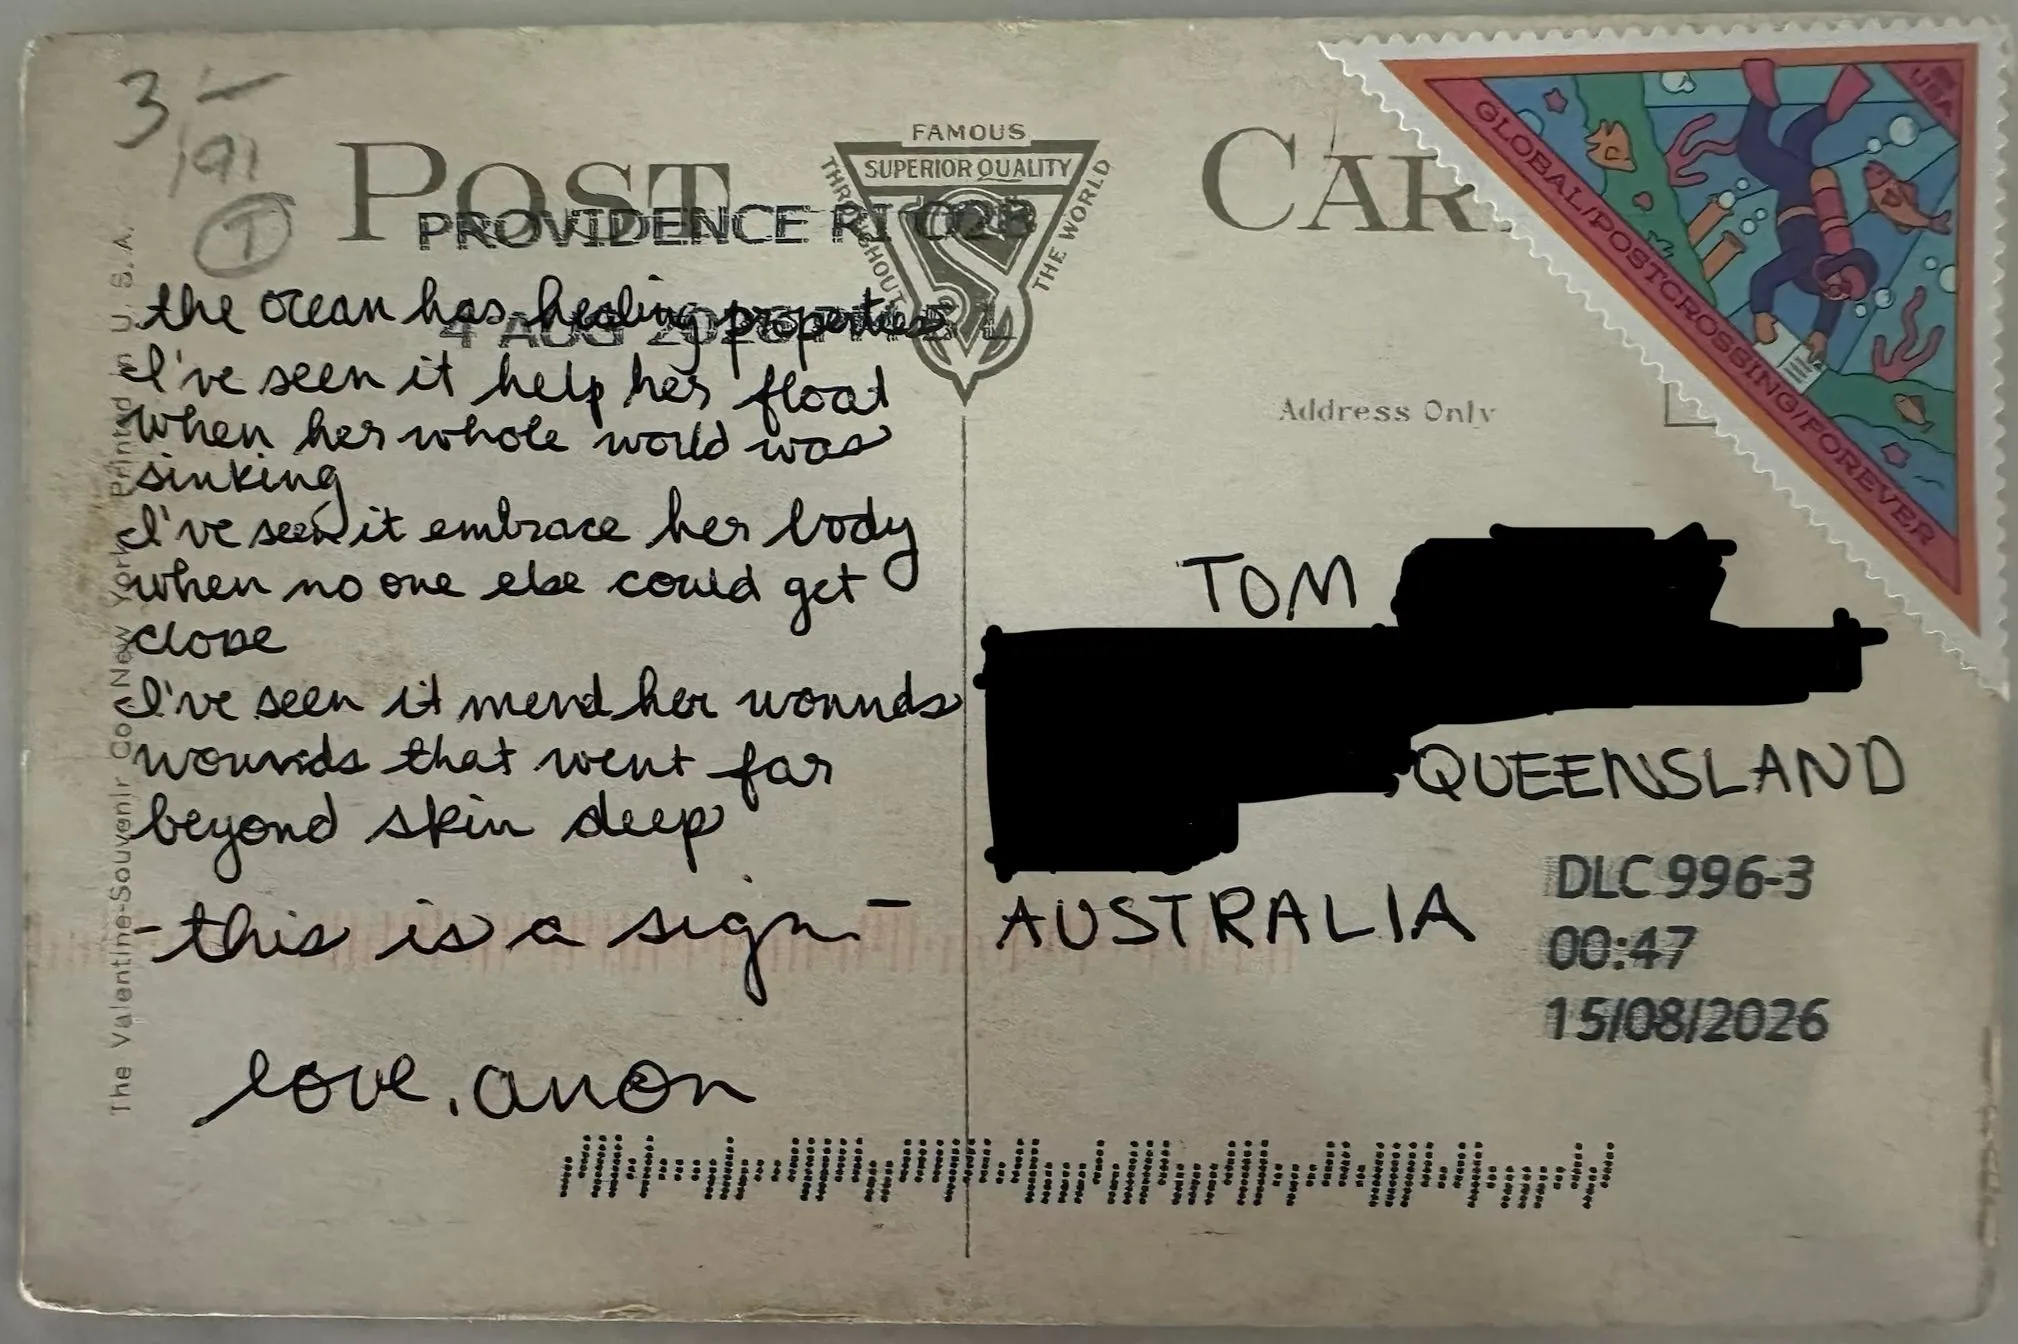 3/-
191
I
POST CAR
FAMOUS
SUPERIOR QUALITY
THROUGHOUT
THE WORLD
VS
PROVIDENCE RI 028
4 AUG 2026 PM 5 L
GLOBAL/POSTCROSSING/FOREVER
USA
Address Only
The Valentine-Souvenir Co. New York. Printed in U. S. A.
the ocean has healing properties
I've seen it help her float
when her whole world was
sinking
I've seen it embrace her body
when no one else could get
close
I've seen it mend her wounds
wounds that went far
beyond skin deep
-this is a sign-
love, anon
TOM
QUEENSLAND
AUSTRALIA
DLC 996-3
00:47
15/08/2026